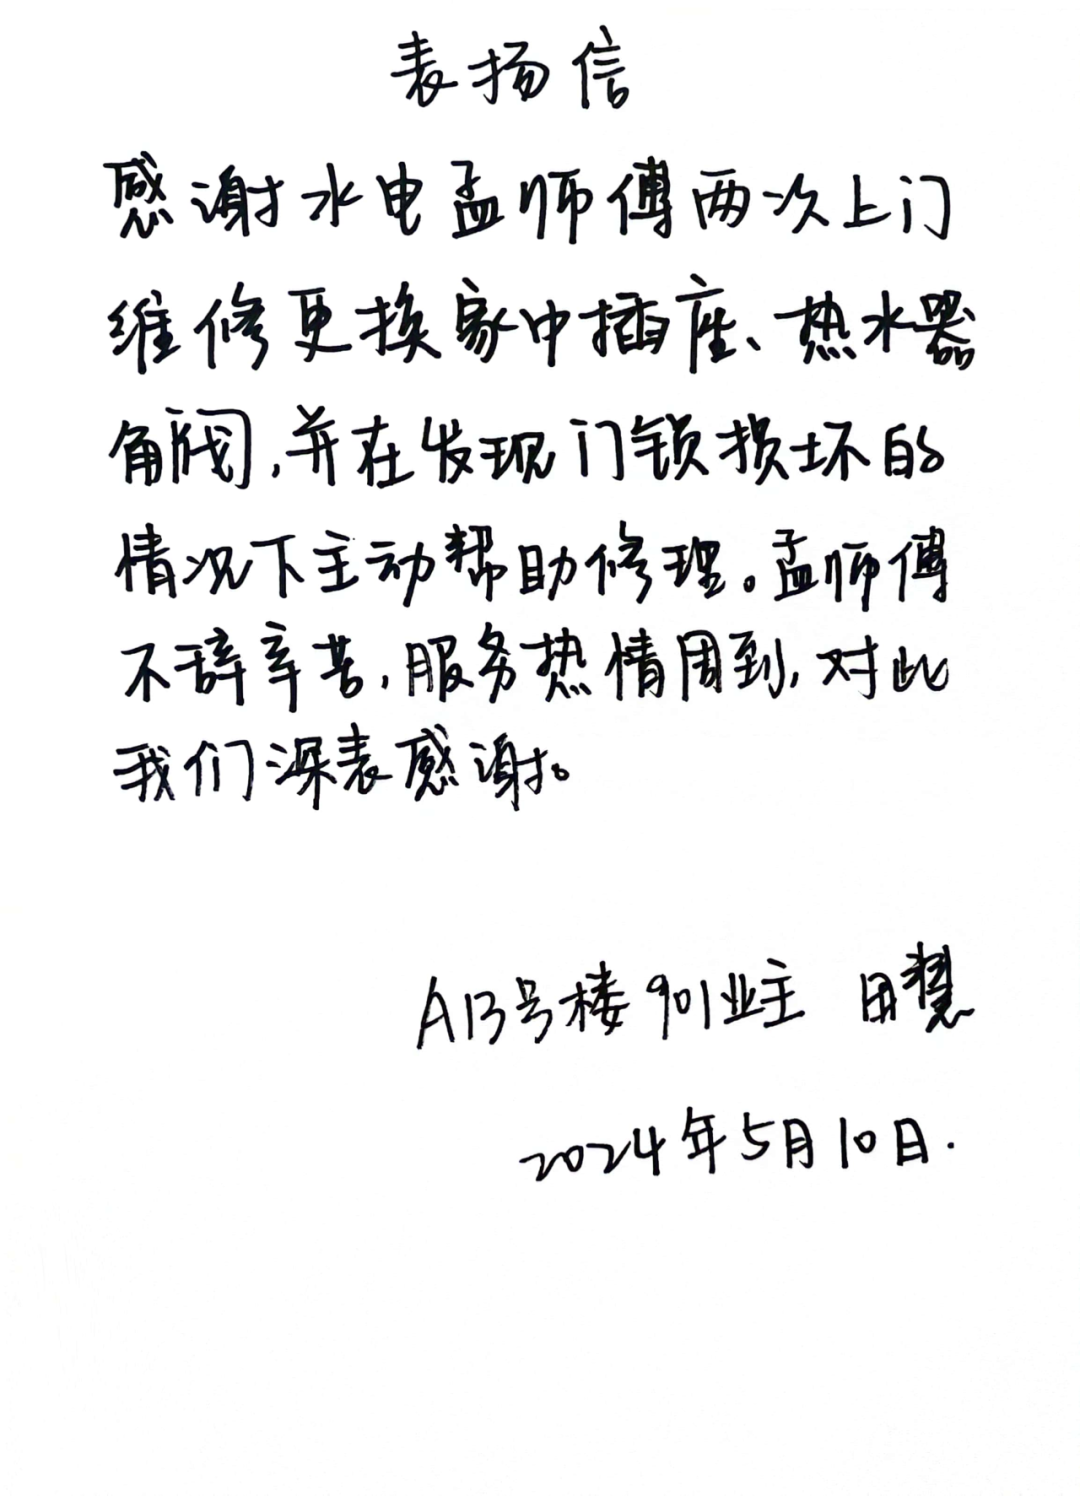 表扬信
感谢水电孟师傅两次上门
维修更换家中插座、热水器
角阀,并在发现门锁损坏的
情况下主动帮助修理。孟师傅
不辞辛苦,服务热情周到,对此
我们深表感谢。
A13号楼901业主 田慧
2024年5月10日.